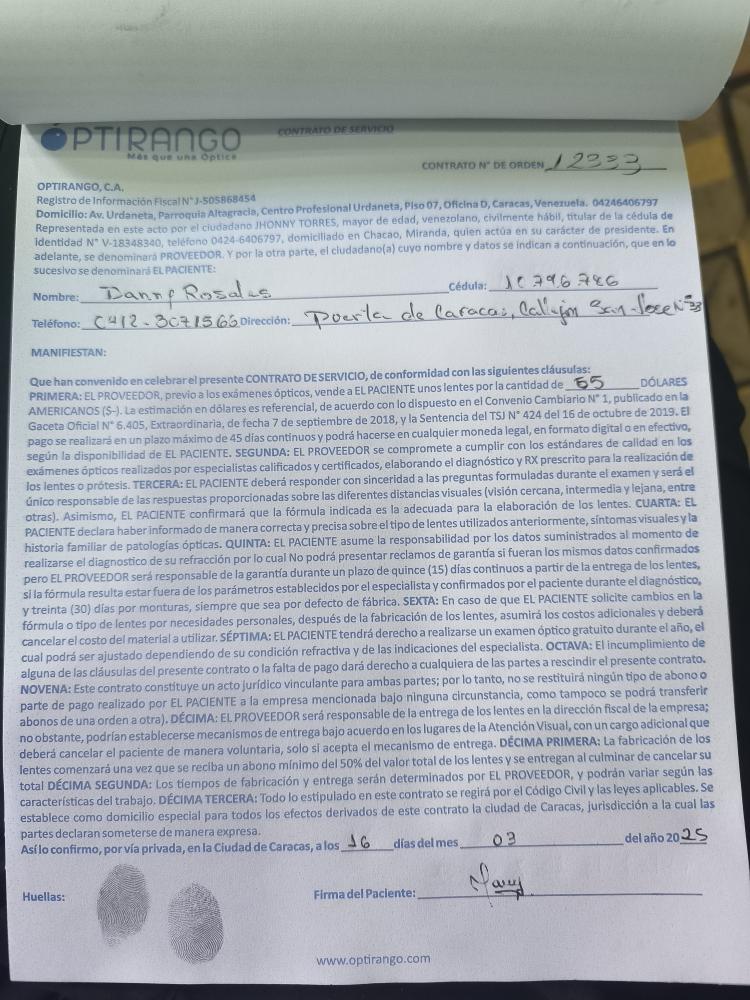 OPTIRANGO
Más que una Óptica
CONTRATO DE SERVICIO
CONTRATO N° DE ORDEN 12333
OPTIRANGO, C.A.
Registro de Información Fiscal N° J-505868454
Domicilio: Av. Urdaneta, Parroquia Altagracia, Centro Profesional Urdaneta, Piso 07, Oficina D, Caracas, Venezuela. 04246406797
Representada en este acto por el ciudadano JHONNY TORRES, mayor de edad, venezolano, civilmente hábil, titular de la cédula de
Identidad N° V-18348340, teléfono 0424-6406797, domiciliado en Chacao, Miranda, quien actúa en su carácter de presidente. En
adelante, se denominará PROVEEDOR. Y por la otra parte, el ciudadano(a) cuyo nombre y datos se indican a continuación, que en lo
sucesivo se denominará EL PACIENTE:
Nombre: Danny Rosales Cédula: 10796786
Teléfono: 0412-3071566 Dirección: Puerta de Caracas, Callejon San Jose N° 33
MANIFIESTAN:
Que han convenido en celebrar el presente CONTRATO DE SERVICIO, de conformidad con las siguientes cláusulas:
PRIMERA: EL PROVEEDOR, previo a los exámenes ópticos, vende a EL PACIENTE unos lentes por la cantidad de 65 DÓLARES
AMERICANOS ($-). La estimación en dólares es referencial, de acuerdo con lo dispuesto en el Convenio Cambiario N° 1, publicado en la
Gaceta Oficial N° 6.405, Extraordinaria, de fecha 7 de septiembre de 2018, y la Sentencia del TSJ N° 424 del 16 de octubre de 2019. El
pago se realizará en un plazo máximo de 45 días continuos y podrá hacerse en cualquier moneda legal, en formato digital o en efectivo,
según la disponibilidad de EL PACIENTE. SEGUNDA: EL PROVEEDOR se compromete a cumplir con los estándares de calidad en los
exámenes ópticos realizados por especialistas calificados y certificados, elaborando el diagnóstico y RX prescrito para la realización de
los lentes o prótesis. TERCERA: EL PACIENTE deberá responder con sinceridad a las preguntas formuladas durante el examen y será el
único responsable de las respuestas proporcionadas sobre las diferentes distancias visuales (visión cercana, intermedia y lejana, entre
otras). Asimismo, EL PACIENTE confirmará que la fórmula indicada es la adecuada para la elaboración de los lentes. CUARTA: EL
PACIENTE declara haber informado de manera correcta y precisa sobre el tipo de lentes utilizados anteriormente, síntomas visuales y la
historia familiar de patologías ópticas. QUINTA: EL PACIENTE asume la responsabilidad por los datos suministrados al momento de
realizarse el diagnostico de su refracción por lo cual No podrá presentar reclamos de garantía si fueran los mismos datos confirmados
pero EL PROVEEDOR será responsable de la garantía durante un plazo de quince (15) días continuos a partir de la entrega de los lentes,
si la fórmula resulta estar fuera de los parámetros establecidos por el especialista y confirmados por el paciente durante el diagnóstico,
y treinta (30) días por monturas, siempre que sea por defecto de fábrica. SEXTA: En caso de que EL PACIENTE solicite cambios en la
fórmula o tipo de lentes por necesidades personales, después de la fabricación de los lentes, asumirá los costos adicionales y deberá
cancelar el costo del material a utilizar. SÉPTIMA: EL PACIENTE tendrá derecho a realizarse un examen óptico gratuito durante el año, el
cual podrá ser ajustado dependiendo de su condición refractiva y de las indicaciones del especialista. OCTAVA: El incumplimiento de
alguna de las cláusulas del presente contrato o la falta de pago dará derecho a cualquiera de las partes a rescindir el presente contrato.
NOVENA: Este contrato constituye un acto jurídico vinculante para ambas partes; por lo tanto, no se restituirá ningún tipo de abono o
parte de pago realizado por EL PACIENTE a la empresa mencionada bajo ninguna circunstancia, como tampoco se podrá transferir
abonos de una orden a otra). DÉCIMA: EL PROVEEDOR será responsable de la entrega de los lentes en la dirección fiscal de la empresa;
no obstante, podrían establecerse mecanismos de entrega bajo acuerdo en los lugares de la Atención Visual, con un cargo adicional que
deberá cancelar el paciente de manera voluntaria, solo si acepta el mecanismo de entrega. DÉCIMA PRIMERA: La fabricación de los
lentes comenzará una vez que se reciba un abono mínimo del 50% del valor total de los lentes y se entregan al culminar de cancelar su
total DÉCIMA SEGUNDA: Los tiempos de fabricación y entrega serán determinados por EL PROVEEDOR, y podrán variar según las
características del trabajo. DÉCIMA TERCERA: Todo lo estipulado en este contrato se regirá por el Código Civil y las leyes aplicables. Se
establece como domicilio especial para todos los efectos derivados de este contrato la ciudad de Caracas, jurisdicción a la cual las
partes declaran someterse de manera expresa.
Así lo confirmo, por vía privada, en la Ciudad de Caracas, a los 16 días del mes 03 del año 2025
Huellas: Firma del Paciente:
www.optirango.com